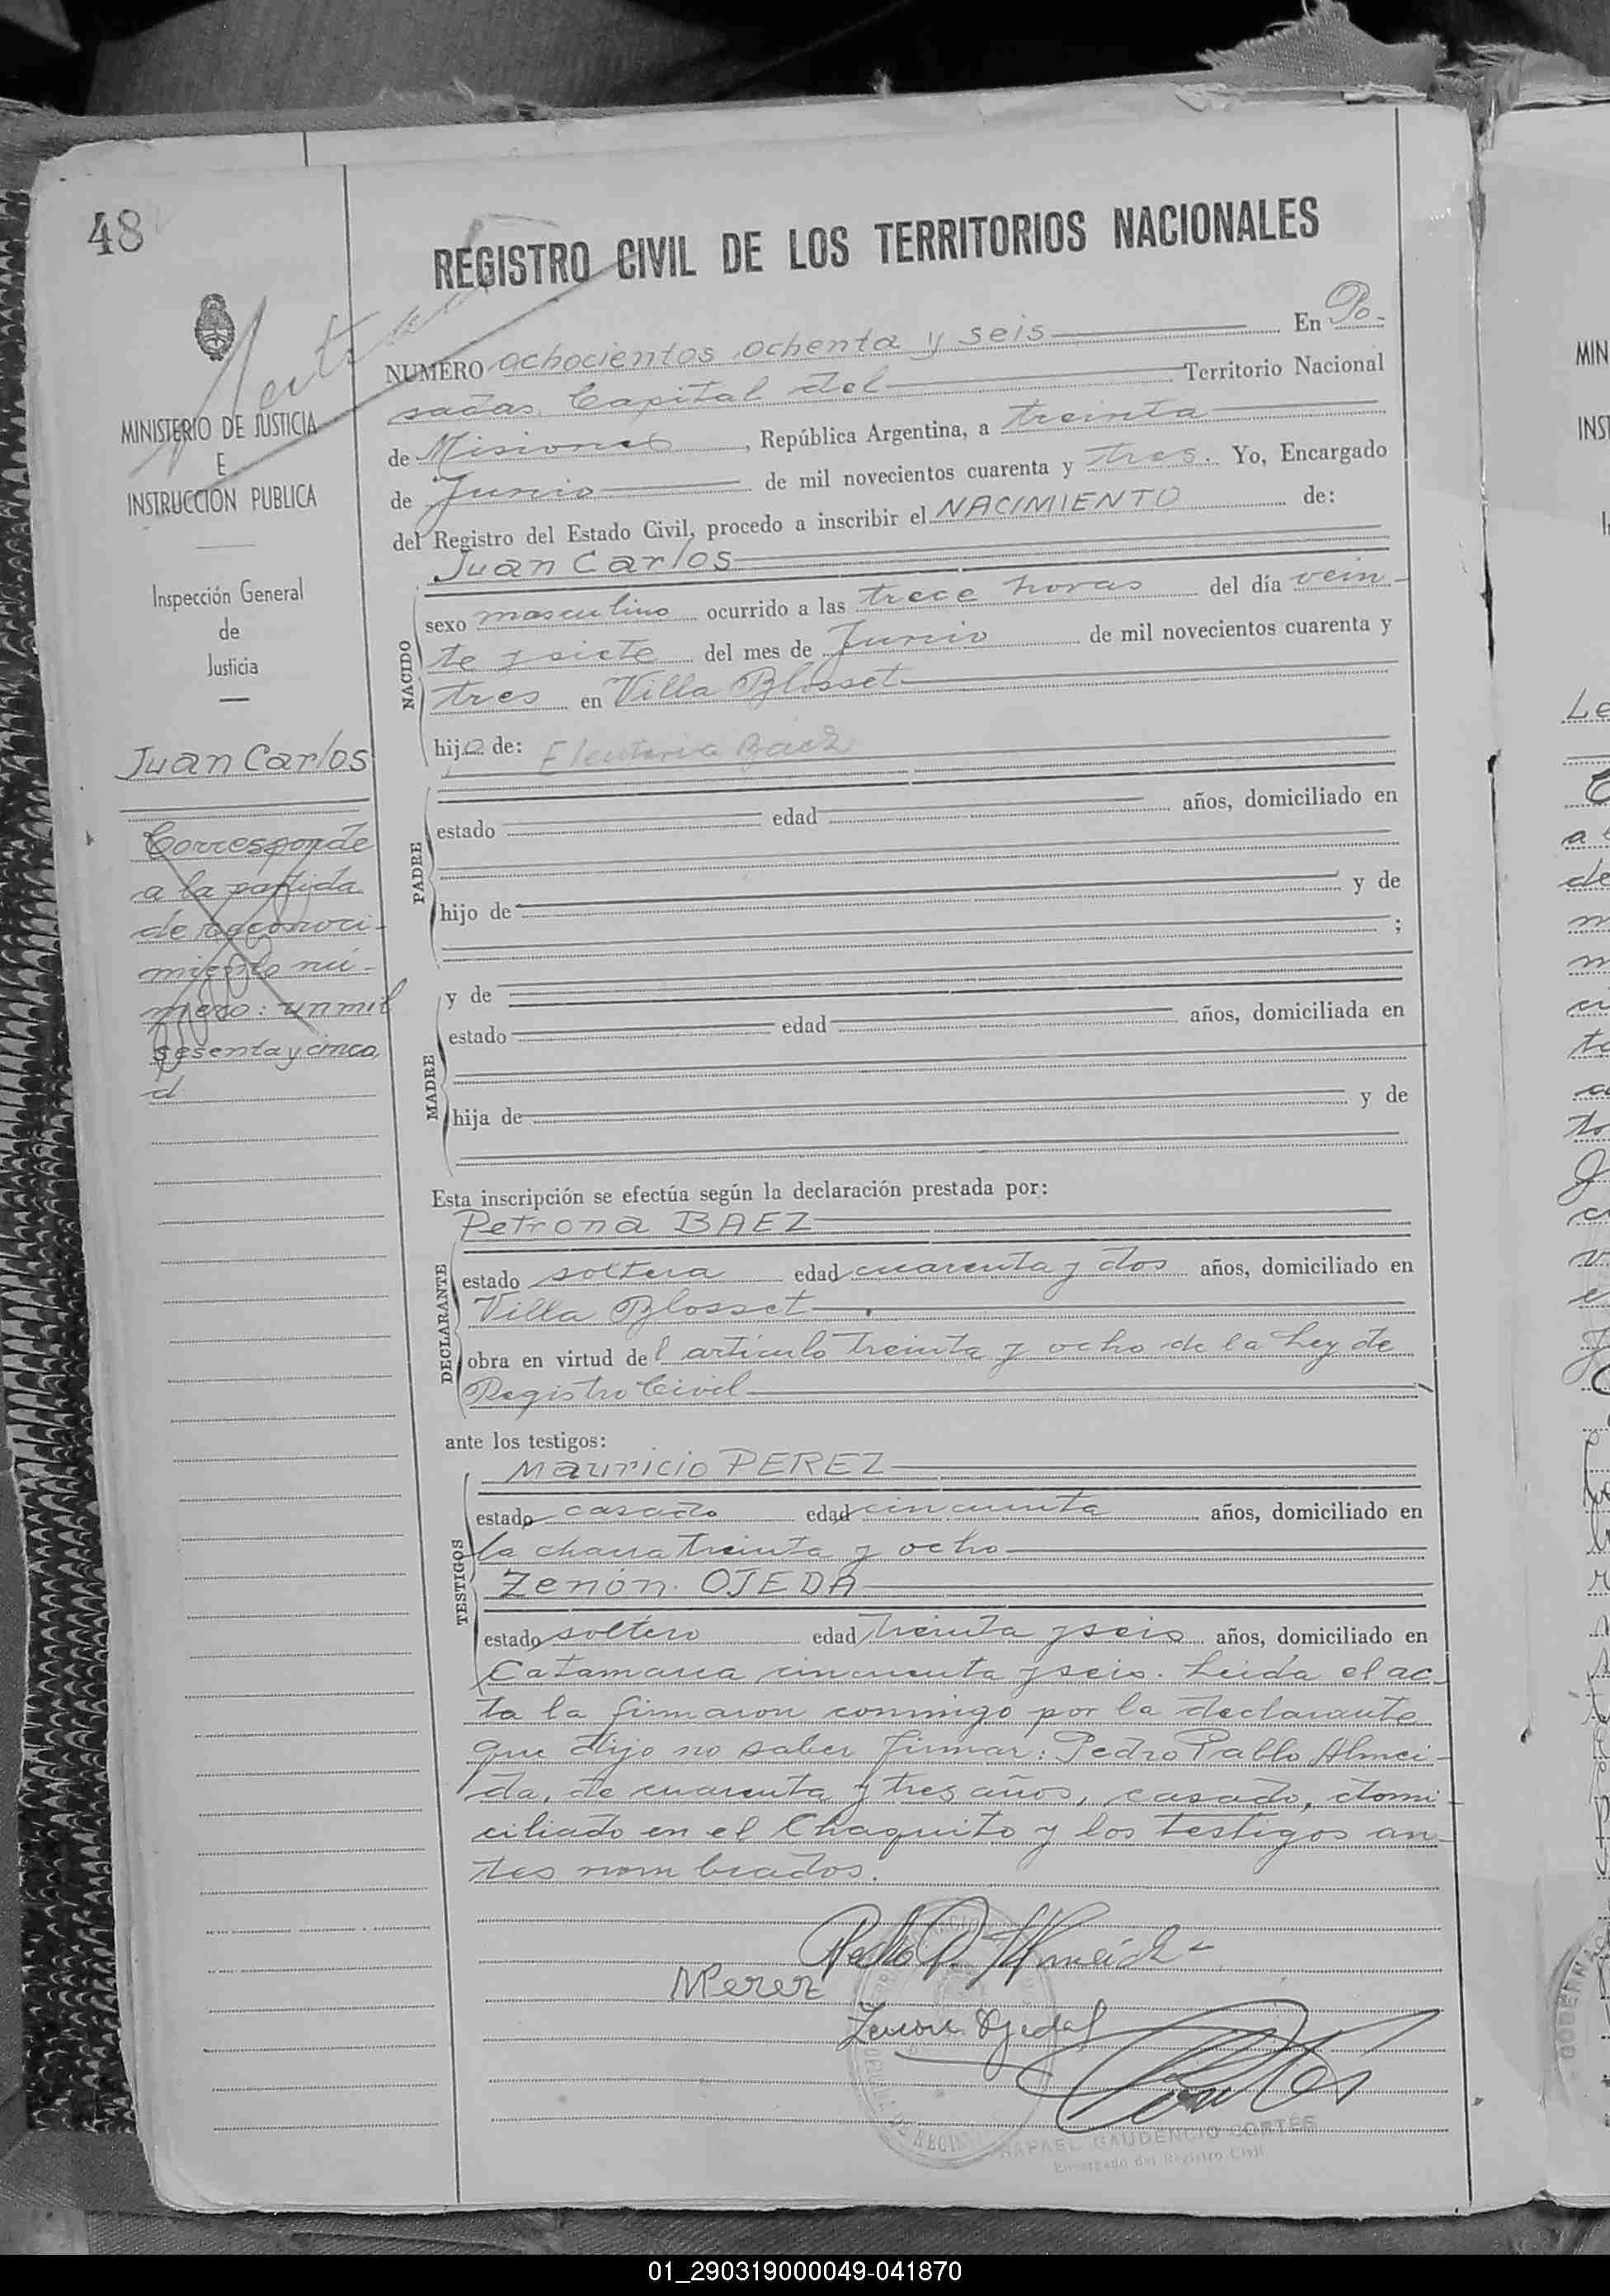 48
REGISTRO CIVIL DE LOS TERRITORIOS NACIONALES
MINISTERIO DE JUSTICIA
E
INSTRUCCION PUBLICA
Inspección General
de
Justicia
Juan Carlos
Corresponde
a la partida
de reconoci-
miento nú-
mero: un mil
sesenta y cinco
d
NUMERO ochocientos ochenta y seis En Po-
sadas Capital del Territorio Nacional
de Misiones, República Argentina, a treinta
de Junio de mil novecientos cuarenta y tres. Yo, Encargado
del Registro del Estado Civil, procedo a inscribir el NACIMIENTO de:
Juan Carlos
NACIDO
sexo masculino ocurrido a las trece horas del día vein-
te y siete del mes de Junio de mil novecientos cuarenta y
tres en Villa Blosset
hijo de: Eleuteria Baez
PADRE
estado edad años, domiciliado en
hijo de y de
;
MADRE
y de
estado edad años, domiciliada en
hija de y de
Esta inscripción se efectúa según la declaración prestada por:
Petrona BAEZ
DECLARANTE
estado soltera edad cuarenta y dos años, domiciliado en
Villa Blosset
obra en virtud del artículo treinta y ocho de la Ley de
Registro Civil
ante los testigos:
Mauricio PEREZ
TESTIGOS
estado casado edad cincuenta años, domiciliado en
la chacra treinta y ocho
Zenón OJEDA
estado soltero edad treinta y seis años, domiciliado en
Catamarca cincuenta y seis. Leida el ac-
ta la firmaron conmigo por la declarante
que dijo no saber firmar: Pedro Pablo Almei-
da, de cuarenta y tres años, casado, domi-
ciliado en el Chaquito y los testigos an-
tes nombrados.
Pedro P. Almeida
MPerez
Zenon Ojeda
RAFAEL GAUDENCIO CORTÉS
Encargado del Registro Civil
01_290319000049-041870